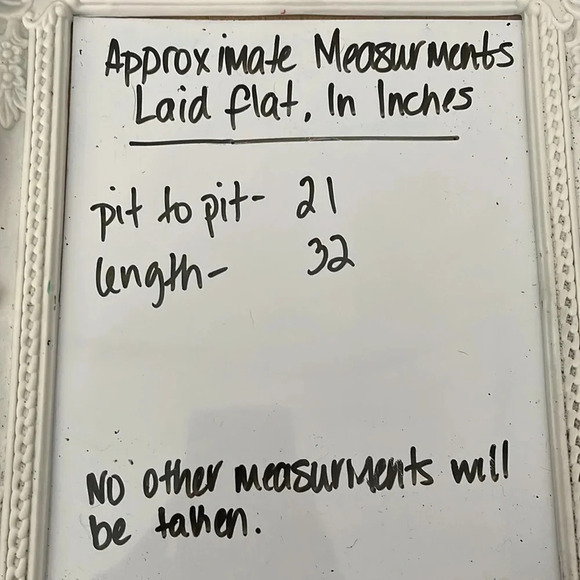 Approximate Measurments
Laid flat, In Inches
pit to pit- 21
length- 32
No other measurments will
be taken.